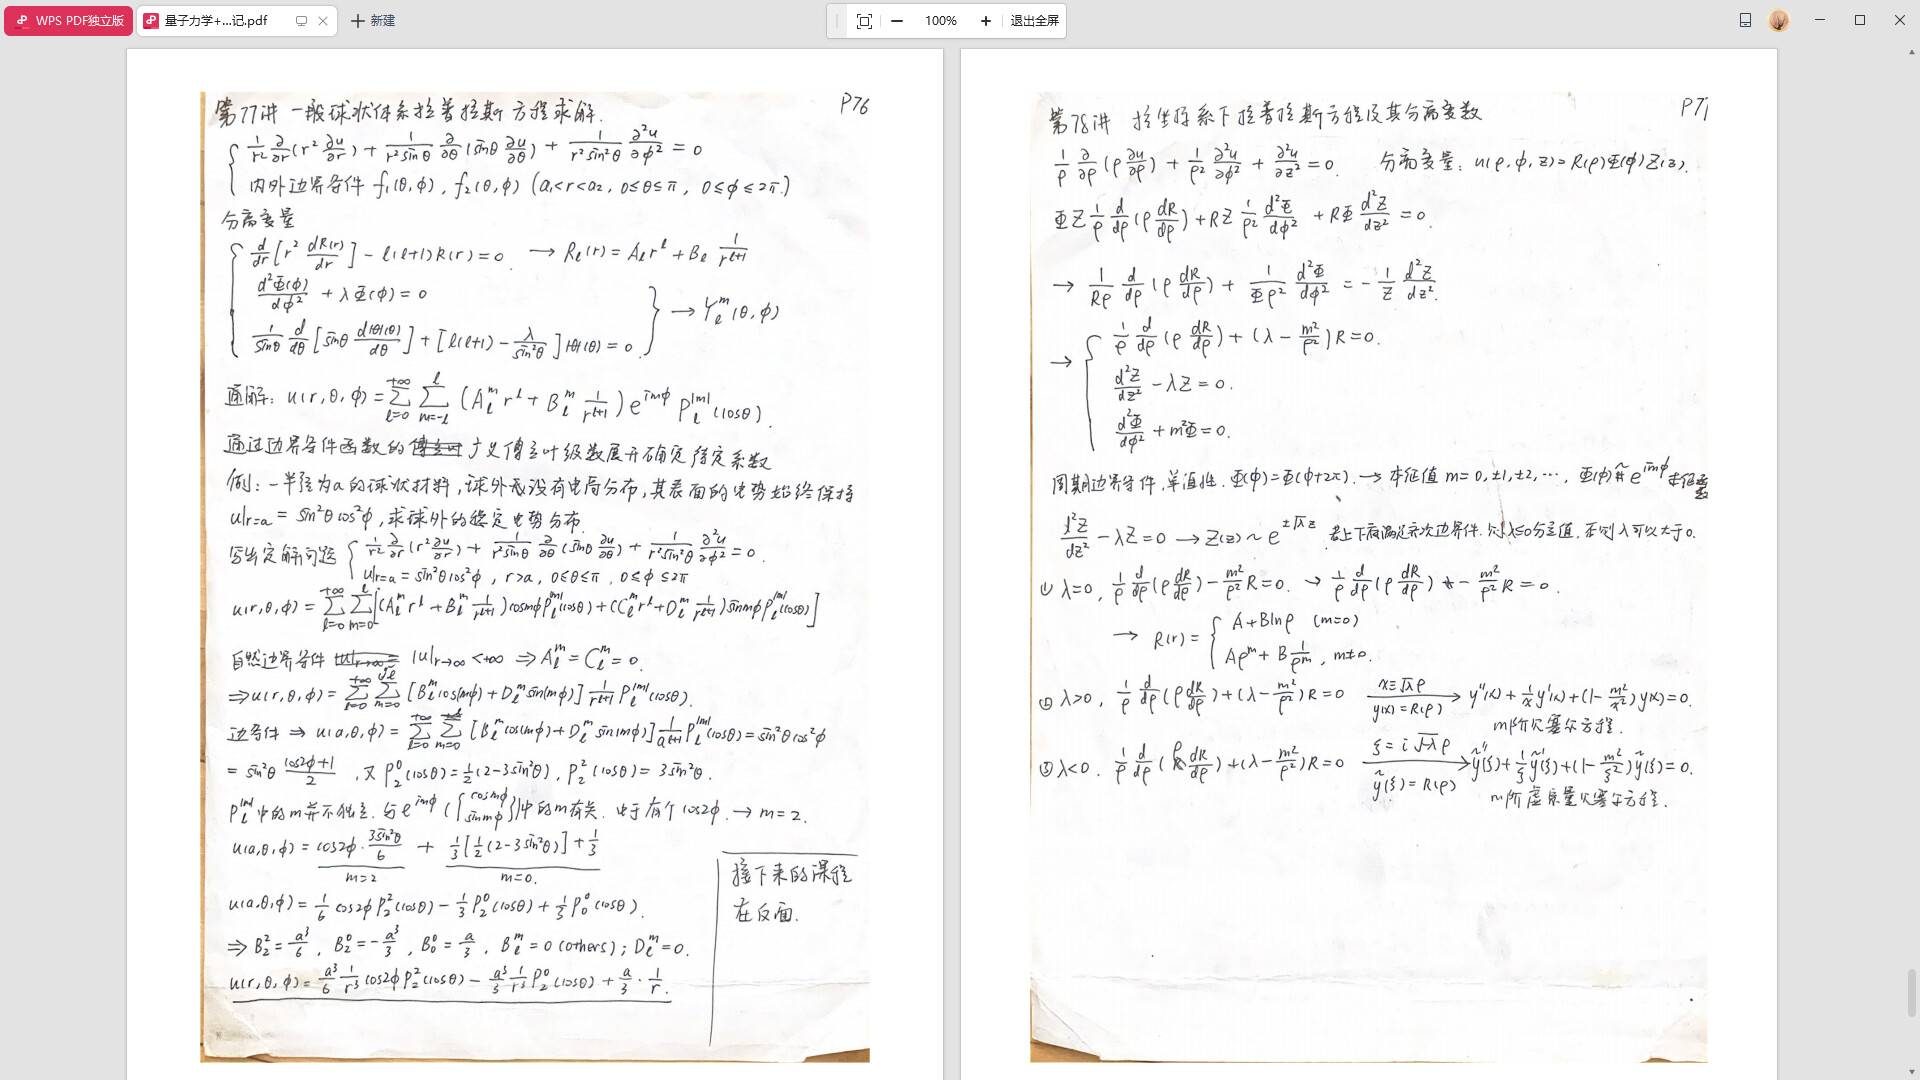 WPS PDF独立版
量子力学+...记.pdf
新建
100%
退出全屏
第77讲 一般球状体系拉普拉斯方程求解.
P76
{ 1/r² ∂/∂r (r² ∂u/∂r) + 1/(r² sinθ) ∂/∂θ (sinθ ∂u/∂θ) + 1/(r² sin²θ) ∂²u/∂φ² = 0
内外边界条件 f₁(θ,φ), f₂(θ,φ) (a₁<r<a₂, 0≤θ≤π, 0≤φ≤2π.)
分离变量
{ d/dr [r² dR(r)/dr] - l(l+1)R(r) = 0. → R_l(r) = A_l r^l + B_l 1/r^(l+1)
d²Φ(φ)/dφ² + λΦ(φ) = 0
1/sinθ d/dθ [sinθ dΘ(θ)/dθ] + [l(l+1) - λ/sin²θ] Θ(θ) = 0. } → Y_l^m(θ,φ)
通解: u(r,θ,φ) = Σ_(l=0)^(+∞) Σ_(m=-l)^l (A_l^m r^l + B_l^m 1/r^(l+1)) e^(imφ) P_l^|m|(cosθ).
通过边界条件函数的广义傅立叶级数展开确定待定系数
例: 一半径为a的球状材料,球外无没有电荷分布,其表面的电势始终保持
u|r=a = sin²θcos²φ, 求球外的稳定电势分布.
写出定解问题 { 1/r² ∂/∂r (r² ∂u/∂r) + 1/(r² sinθ) ∂/∂θ (sinθ ∂u/∂θ) + 1/(r² sin²θ) ∂²u/∂φ² = 0.
u|r=a = sin²θcos²φ, r>a, 0≤θ≤π, 0≤φ≤2π
u(r,θ,φ) = Σ_(l=0)^(+∞) Σ_(m=0)^l [(A_l^m r^l + B_l^m 1/r^(l+1)) cosmφ P_l^|m|(cosθ) + (C_l^m r^l + D_l^m 1/r^(l+1)) sinmφ P_l^|m|(cosθ)]
自然边界条件 |u|r→∞ <+∞ ⇒ A_l^m = C_l^m = 0.
⇒ u(r,θ,φ) = Σ_(l=0)^(+∞) Σ_(m=0)^l [B_l^m cos(mφ) + D_l^m sin(mφ)] 1/r^(l+1) P_l^|m|(cosθ).
边条件 ⇒ u(a,θ,φ) = Σ_(l=0)^(+∞) Σ_(m=0)^l [B_l^m cos(mφ) + D_l^m sin(mφ)] 1/a^(l+1) P_l^|m|(cosθ) = sin²θcos²φ
= sin²θ (cos2φ+1)/2, 又 P_2^0(cosθ) = 1/2(2-3sin²θ), P_2^2(cosθ) = 3sin²θ.
P_l^|m| 中的m并不独立, 与e^(imφ) ({cosmφ sinmφ})中的m有关. 由于有个cos2φ. → m=2.
u(a,θ,φ) = cos2φ · 3sin²θ/6 + 1/3[1/2(2-3sin²θ)] + 1/3
m=2 m=0.
u(a,θ,φ) = 1/6 cos2φ P_2^2(cosθ) - 1/3 P_2^0(cosθ) + 1/3 P_0^0(cosθ).
⇒ B_2^2 = a³/6, B_2^0 = -a³/3, B_0^0 = a/3, B_l^m = 0 (others); D_l^m = 0.
u(r,θ,φ) = a³/6 1/r³ cos2φ P_2^2(cosθ) - a³/3 1/r³ P_2^0(cosθ) + a/3 · 1/r.
接下来的课程
在反面.
第78讲 柱坐标系下拉普拉斯方程及其分离变数
P77
1/ρ ∂/∂ρ (ρ ∂u/∂ρ) + 1/ρ² ∂²u/∂φ² + ∂²u/∂z² = 0. 分离变量: u(ρ,φ,z) = R(ρ)Φ(φ)Z(z).
ΦZ 1/ρ d/dρ (ρ dR/dρ) + RZ 1/ρ² d²Φ/dφ² + RΦ d²Z/dz² = 0.
→ 1/(Rρ) d/dρ (ρ dR/dρ) + 1/(Φρ²) d²Φ/dφ² = -1/Z d²Z/dz².
→ { 1/ρ d/dρ (ρ dR/dρ) + (λ - m²/ρ²)R = 0.
d²Z/dz² - λZ = 0.
d²Φ/dφ² + m²Φ = 0.
周期边界条件, 单值性. Φ(φ) = Φ(φ+2π). → 本征值 m = 0, ±1, ±2, ⋯, Φ(φ) ~ e^(imφ) 本征函数
d²Z/dz² - λZ = 0 → Z(z) ~ e^(±√λ z) 若上下底满足齐次边界件. 则λ≤0分立值, 否则λ可以大于0.
① λ=0, 1/ρ d/dρ (ρ dR/dρ) - m²/ρ² R = 0. → 1/ρ d/dρ (ρ dR/dρ) - m²/ρ² R = 0.
→ R(r) = { A+Blnρ (m=0)
Aρ^m + B 1/ρ^m, m≠0.
② λ>0, 1/ρ d/dρ (ρ dR/dρ) + (λ - m²/ρ²)R = 0 →(x≡√λρ, y(x)=R(ρ)) y''(x) + 1/x y'(x) + (1 - m²/x²) y(x) = 0.
m阶贝塞尔方程.
③ λ<0. 1/ρ d/dρ (ρ dR/dρ) + (λ - m²/ρ²)R = 0 →(ξ = i√-λ ρ, ỹ(ξ) = R(ρ)) ỹ''(ξ) + 1/ξ ỹ'(ξ) + (1 - m²/ξ²) ỹ(ξ) = 0.
m阶虚宗量贝塞尔方程.